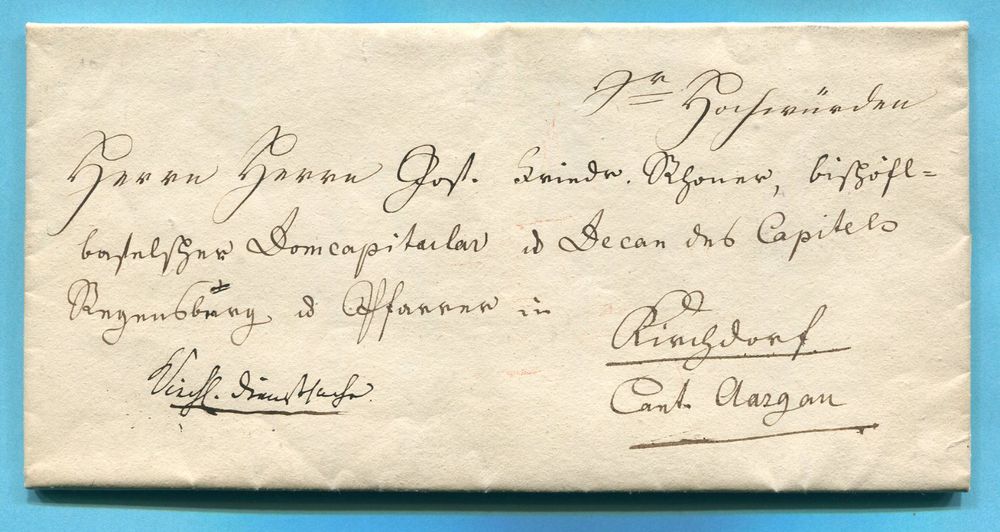 Sr Hochwürden
Herrn Herrn Jos. Friedr. Rhoner, bischöfl=
baselscher Domcapitular u Decan des Capitels
Regensburg, u Pfarrer in
Kirchdorf
Cant. Aargau
Kirchl. Dienstsache.